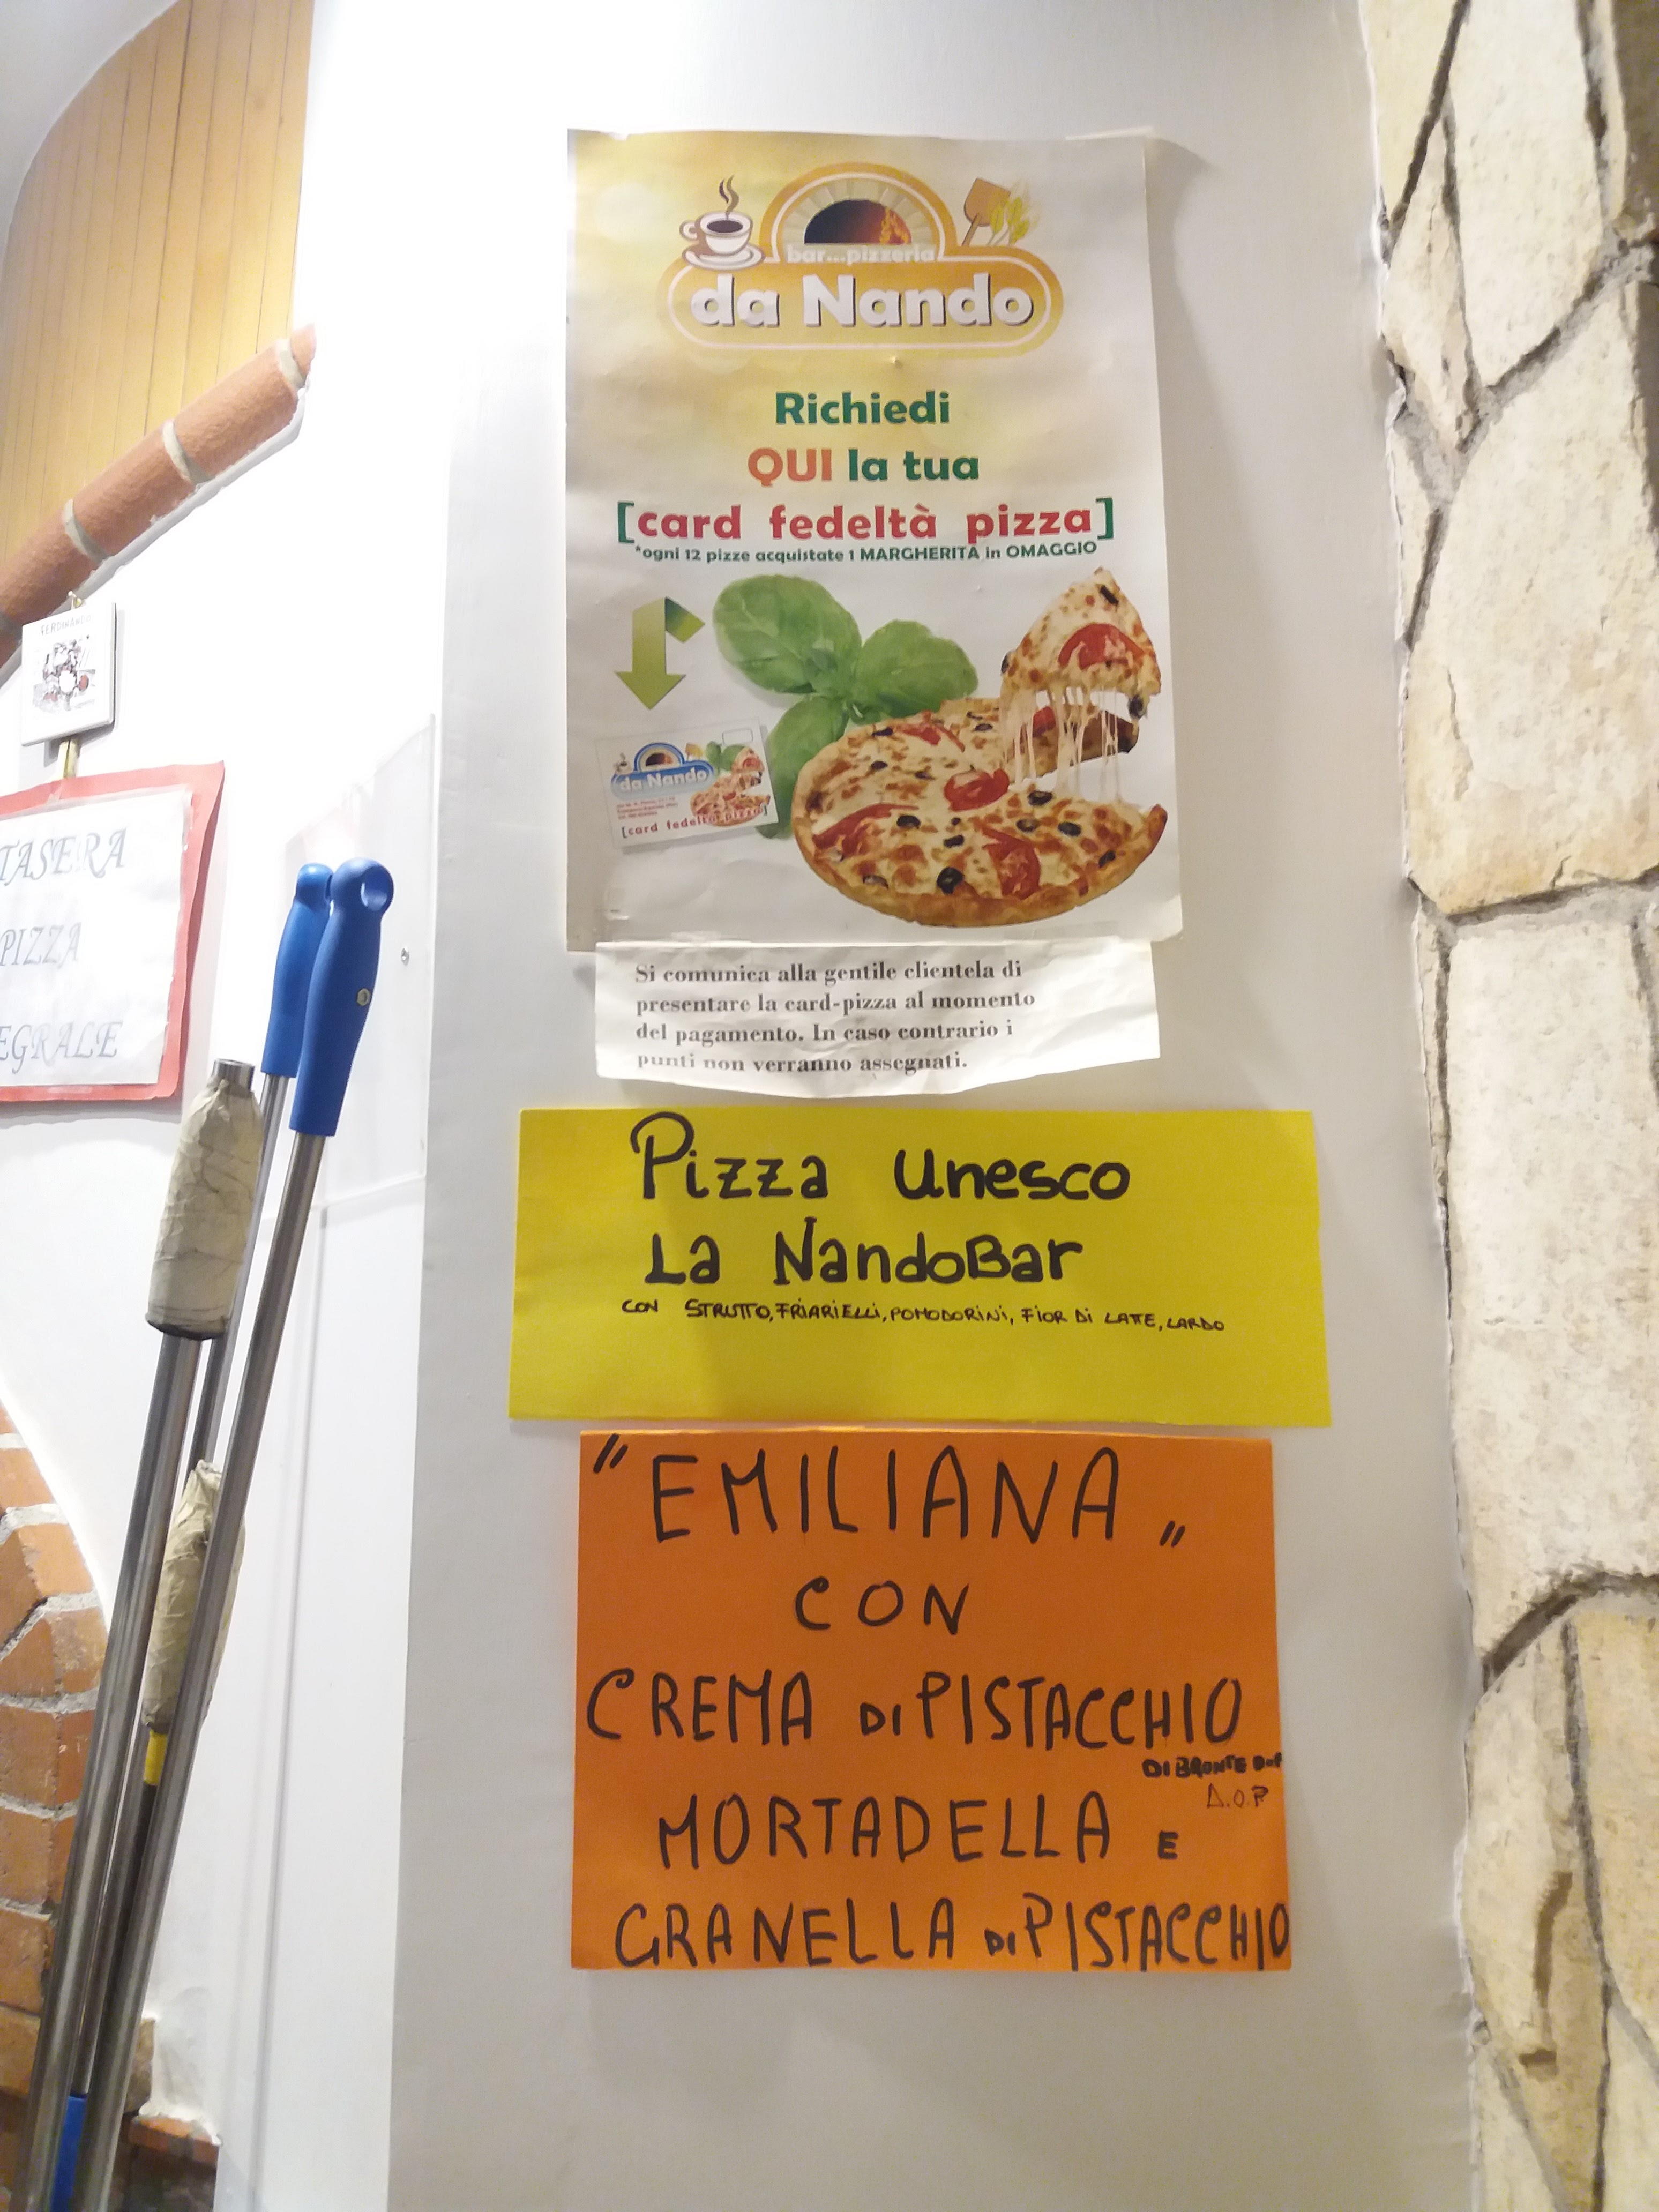 bar...pizzeria
da Nando
Richiedi
QUI la tua
[card fedeltà pizza]
*ogni 12 pizze acquistate 1 MARGHERITA in OMAGGIO
da Nando
[card fedeltà pizza]
Si comunica alla gentile clientela di
presentare la card-pizza al momento
del pagamento. In caso contrario i
punti non verranno assegnati.
Pizza Unesco
La NandoBar
CON STRUTTO, FRIARIELLI, POMODORINI, FIOR DI LATTE, LARDO
"EMILIANA"
CON
CREMA DI PISTACCHIO
DI BRONTE
D.O.P.
MORTADELLA E
GRANELLA DI PISTACCHIO
FERDINANDO
TASERA
PIZZA
EGRALE